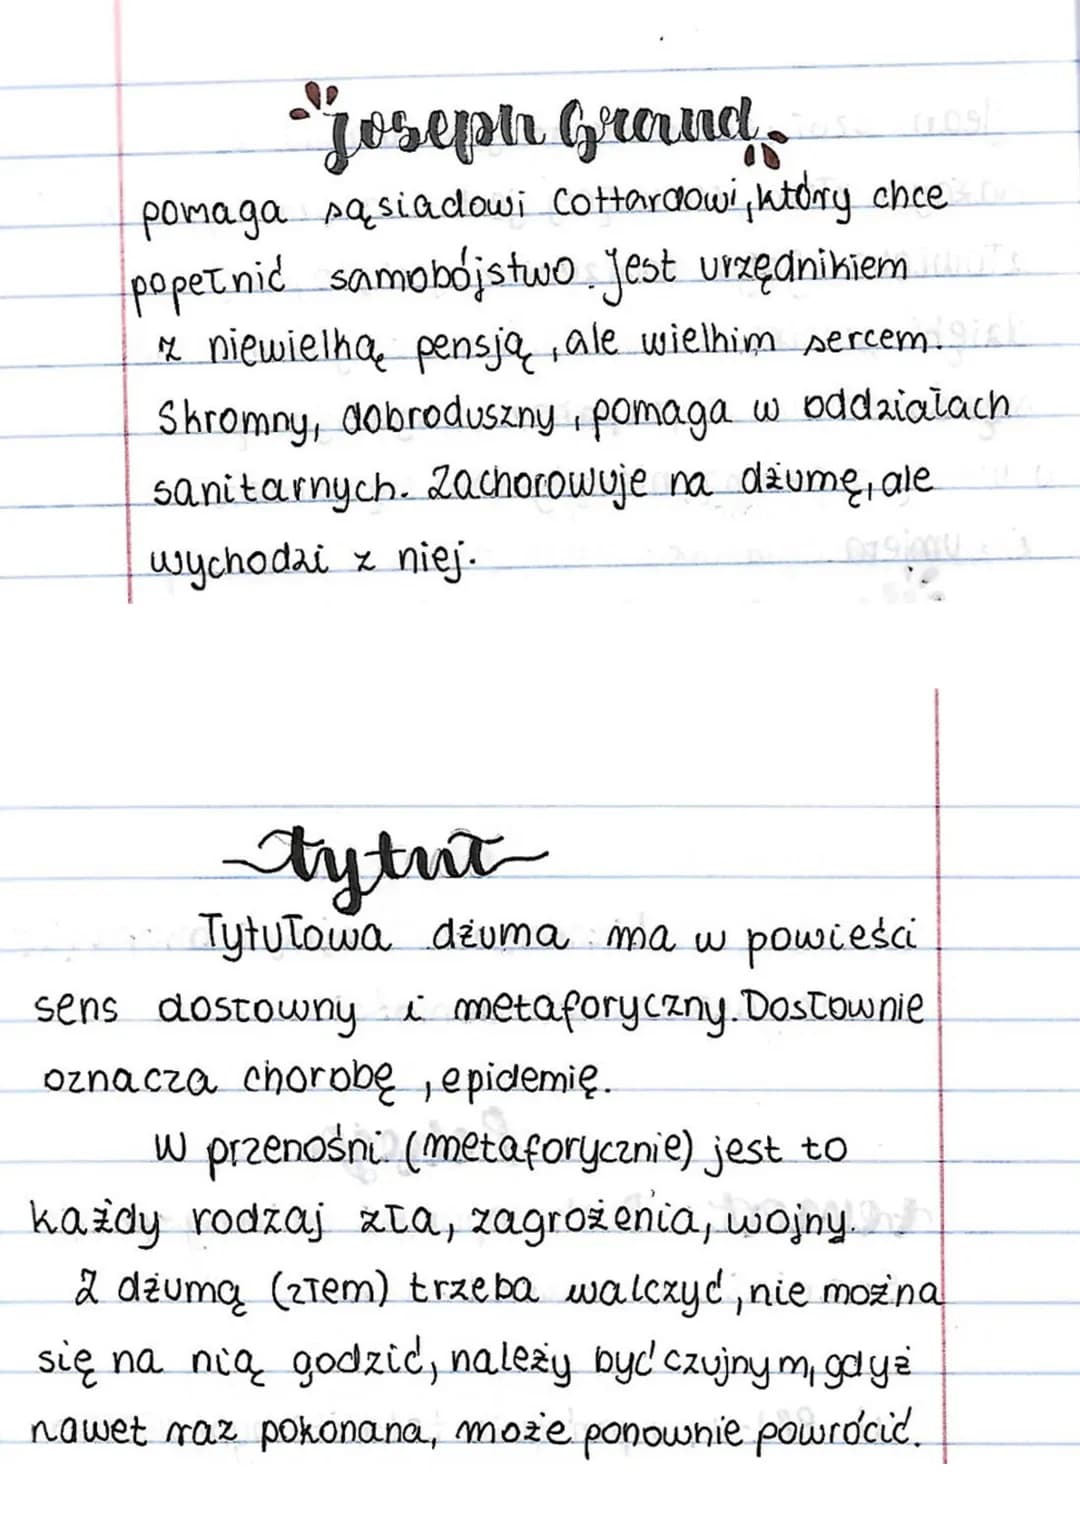 Joseph Grand
pomaga sąsiadowi Cottardowi, który chce
popełnić samobójstwo. Jest urzędnikiem
z niewielką pensją, ale wielkim sercem.
Skromny, dobroduszny, pomaga w oddziałach
sanitarnych. Zachorowuje na dżumę, ale
wychodzi z niej.
tytuł
Tytułowa dżuma ma w powieści
sens dosłowny i metaforyczny. Dosłownie
oznacza chorobę, epidemię.
W przenośni (metaforycznie) jest to
każdy rodzaj zła, zagrożenia, wojny.
Z dżumą (złem) trzeba walczyć, nie można
się na nią godzić, należy być czujnym, gdyż
nawet raz pokonana, może ponownie powrócić.